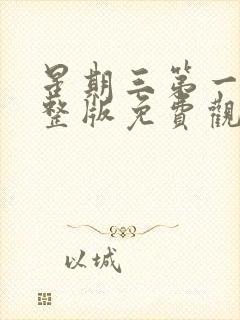 星期三第一
整版免費觀
以城